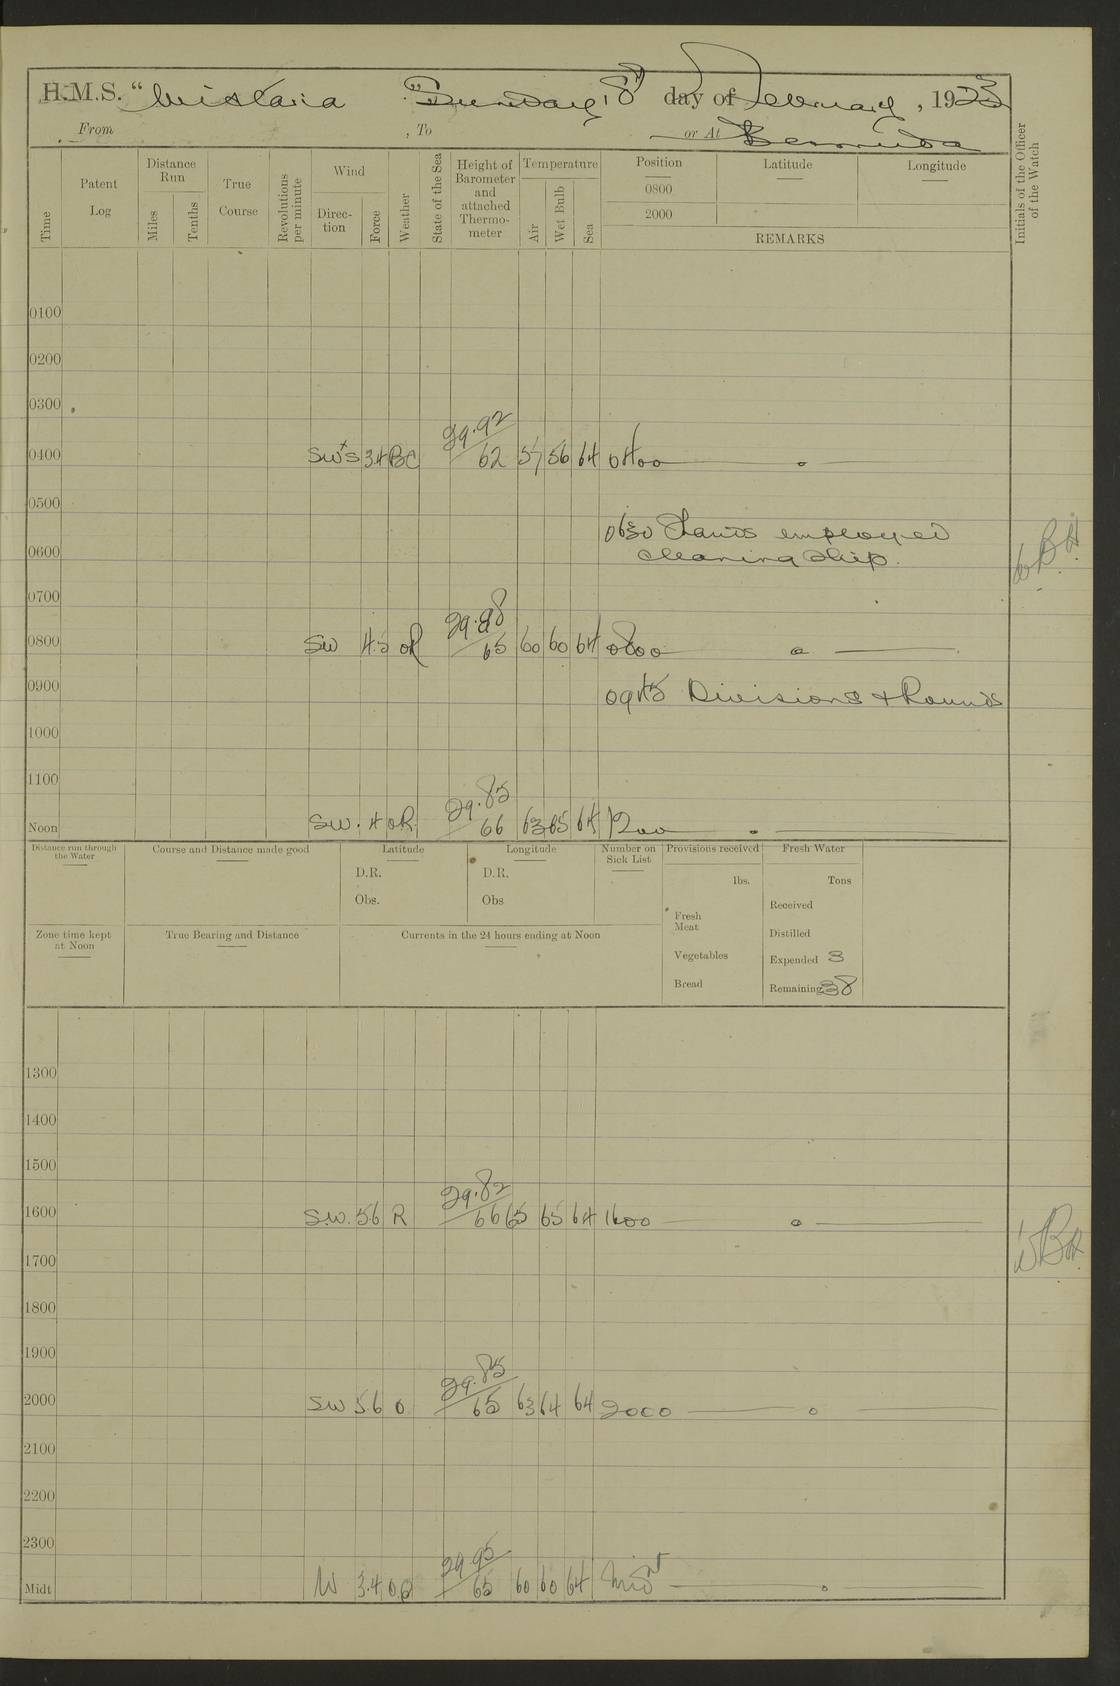 H.M.S. “Wistaria Sunday, 18th day of February, 1923
From , To or At Bermuda
Time
Patent Log
Distance Run
Miles
Tenths
True Course
Revolutions per minute
Wind
Direction
Force
Weather
State of the Sea
Height of Barometer and attached Thermometer
Temperature
Air
Wet Bulb
Sea
Position Latitude Longitude
0800
2000
REMARKS
Initials of the Officer of the Watch
0100
0200
0300
29.92
0400 SW×S 3.4 BC 62 57 56 64 0400
0500
0630 Hands employed
0600 cleaning Ship.
0700
29.88
0800 SW 4.5 oR 65 60 60 64 0800
0900 0945 Divisions & Rounds
1000
1100
29.85
Noon SW. 4 oR. 66 63 65 64 1200
Distance run through the Water
Course and Distance made good
Latitude
D.R.
Obs.
Longitude
D.R.
Obs
Number on Sick List
Provisions received
lbs.
Fresh Meat
Vegetables
Bread
Fresh Water
Tons
Received
Distilled
Expended 3
Remaining 38
Zone time kept at Noon
True Bearing and Distance
Currents in the 24 hours ending at Noon
1300
1400
1500
29.82
1600 S.W. 56 R 66 65 65 64 1600
1700
1800
1900
29.85
2000 SW 56 o 65 63 64 64 2000
2100
2200
2300
29.95
Midt W 3.4 65 60 60 64 Midt